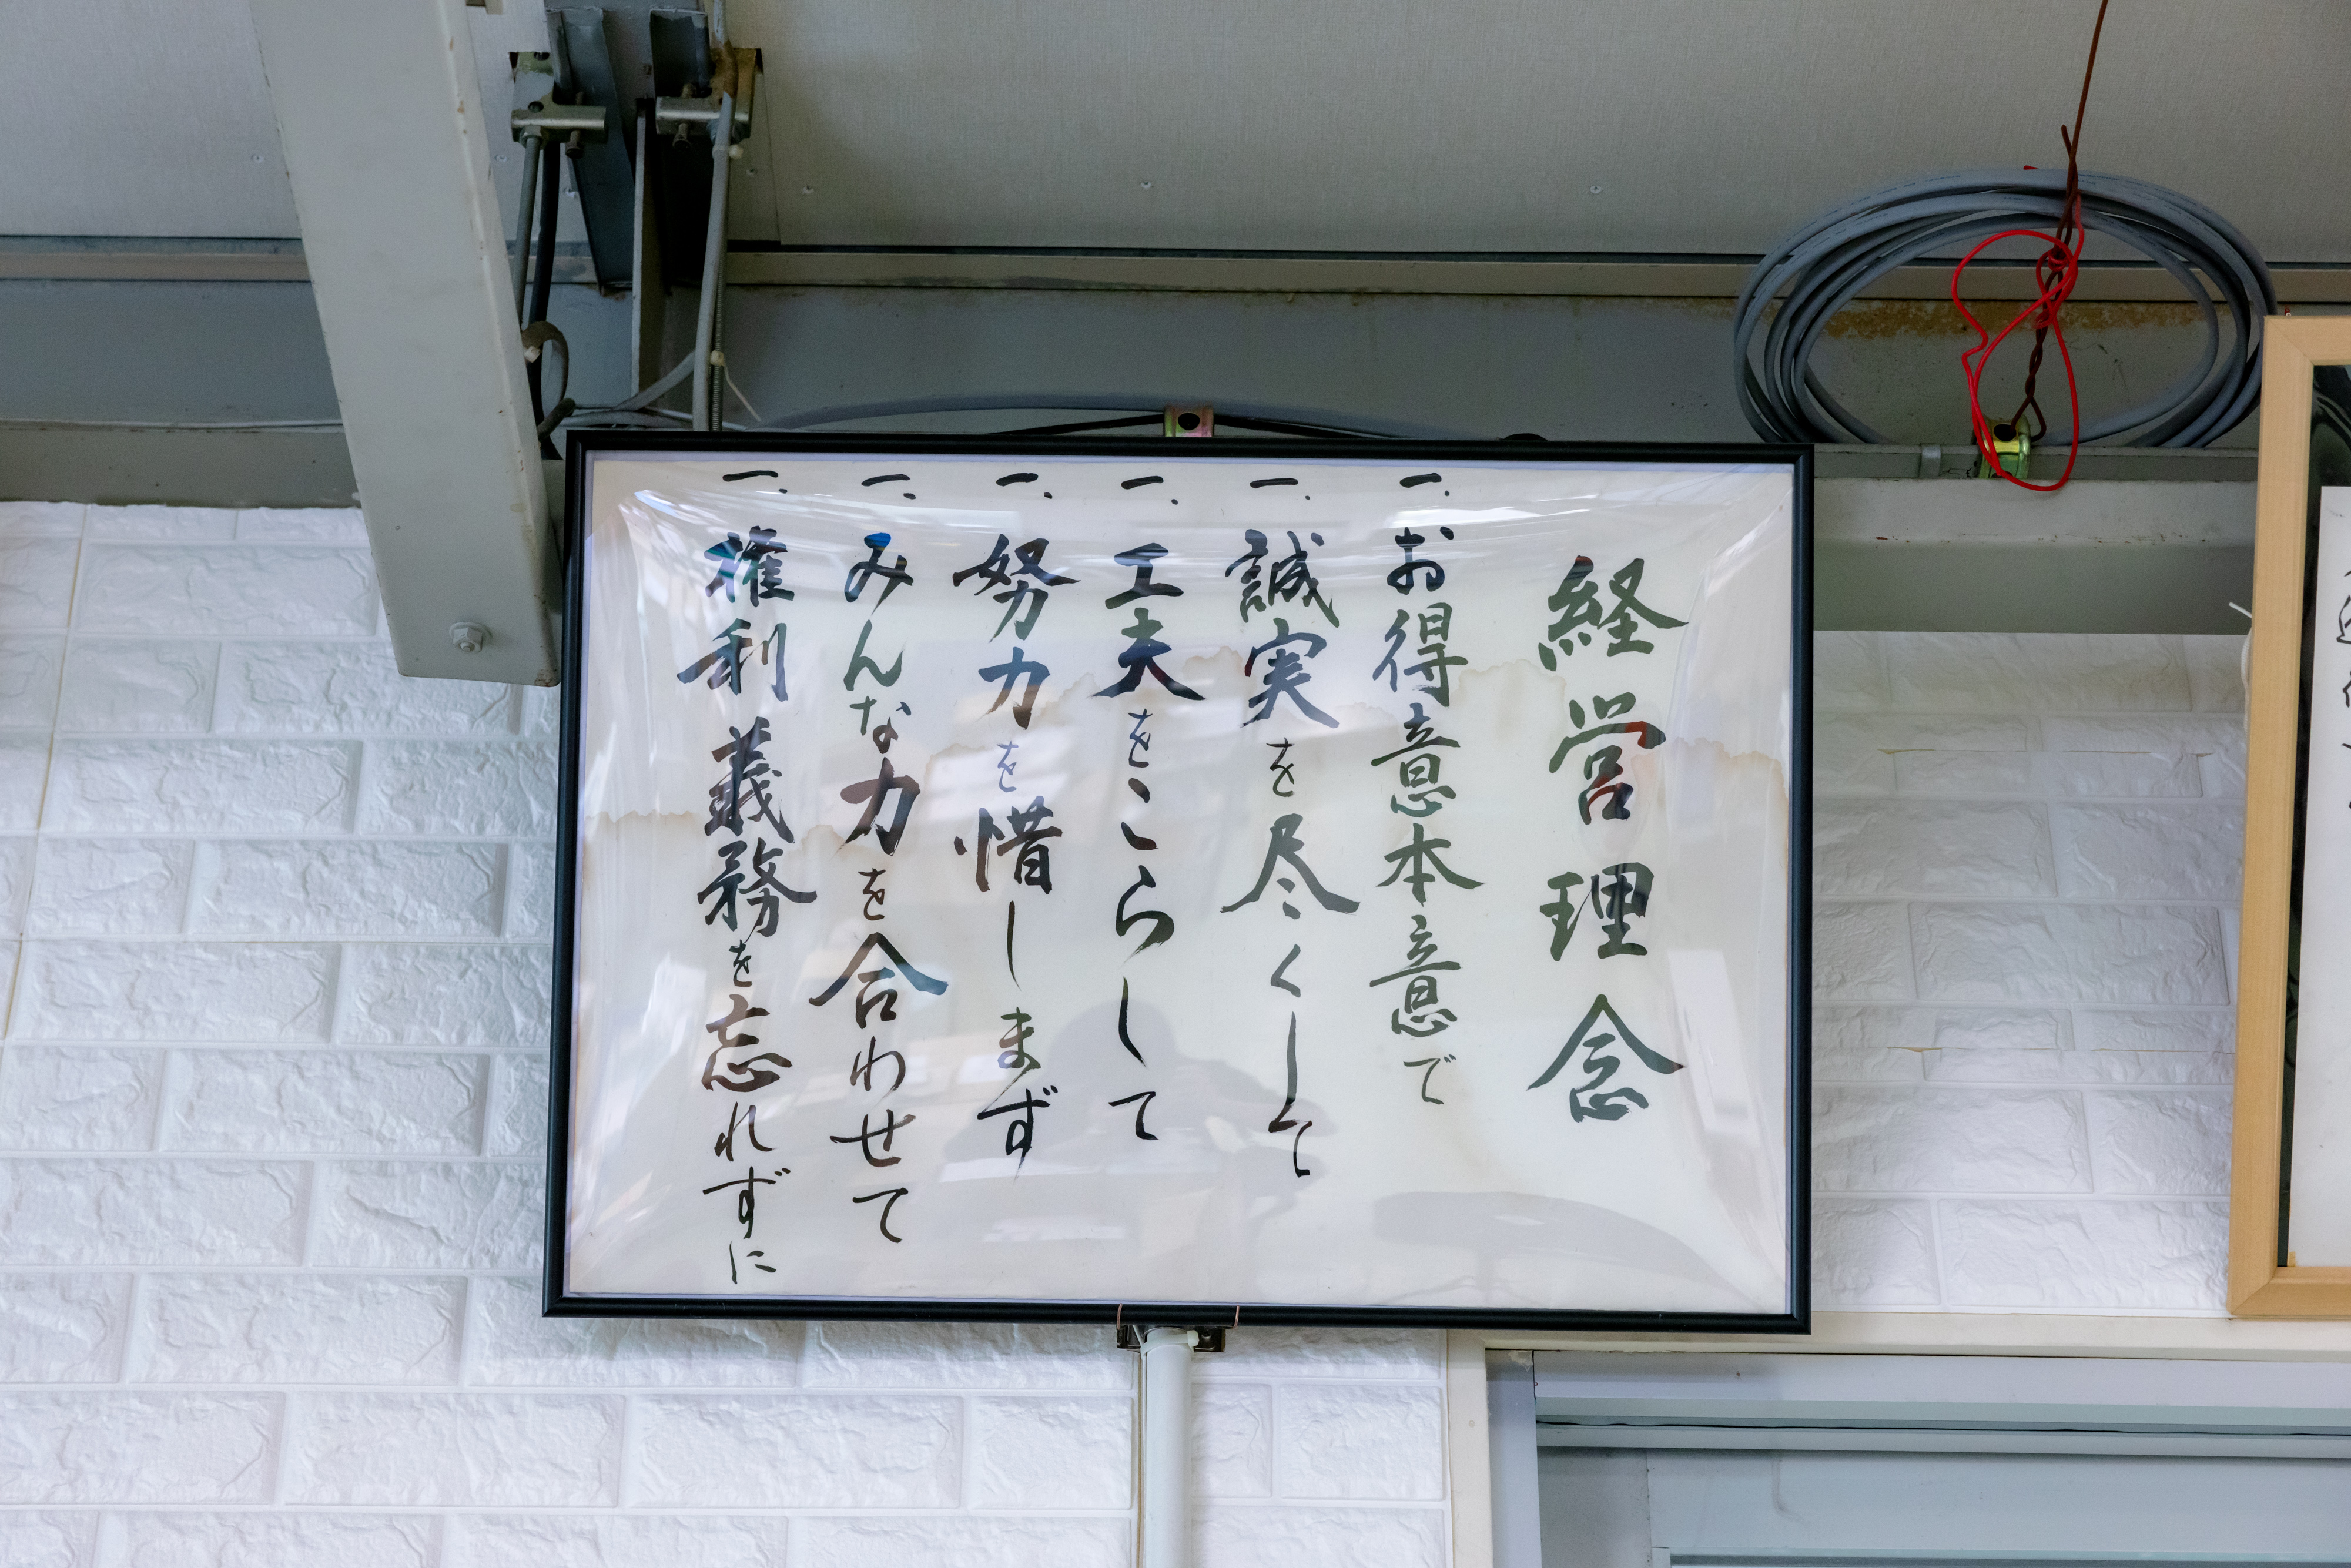 経営理念
一、お得意本意で
一、誠実を尽くして
一、工夫をこらして
一、努力を惜しまず
一、みんな力を合わせて
一、権利義務を忘れずに